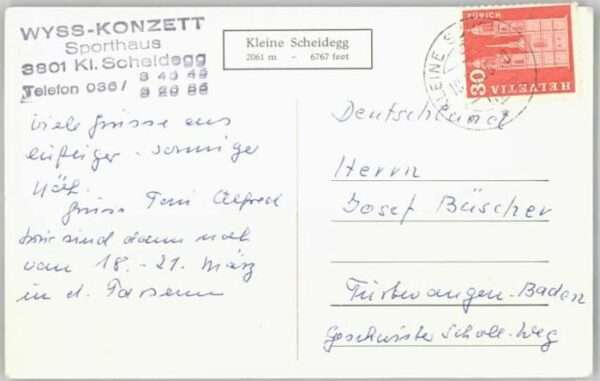 WYSS-KONZETT
Sporthaus
3801 Kl. Scheidegg
Telefon 036/ 3 43 49
3 20 86
Kleine Scheidegg
2061 m - 6767 feet
ZÜRICH
30
HELVETIA
KLEINE
Viele Grüsse aus
luftiger - sonniger
Höh.
Gruss Toni Alfred
wir sind dann noch
vom 18. - 21. März
in d. Parsenn
Deutschland
Herrn
Josef Büscher
Furtwangen-Baden
Geschwister Scholl-Weg